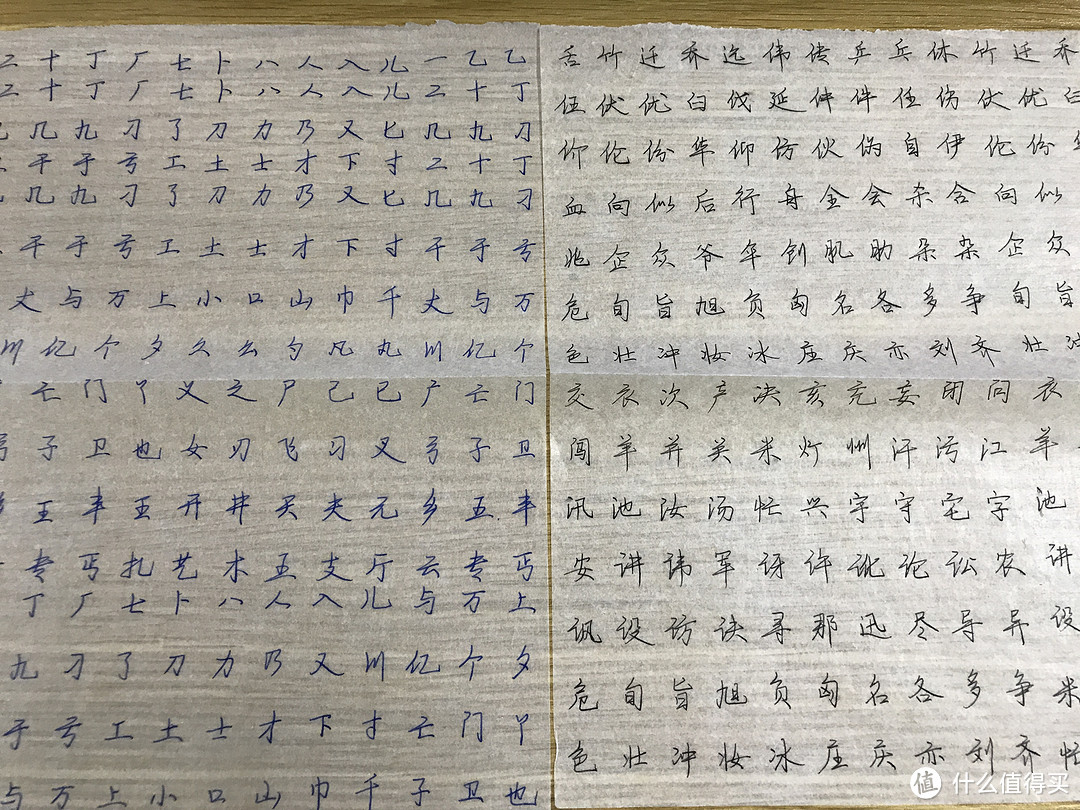 二十丁厂七卜八人入儿一乙乙
二十丁厂七卜八人入儿二十丁
几九刁了刀力乃又匕几九刁
干于亏工土士才下寸二十丁
几九刁了刀力乃又匕几九刁
干于亏工土士才下寸干于亏
丈与万上小口山巾千丈与万
川亿个夕久么勺凡丸川亿个
亡门丫义之尸己已广亡门
弓子卫也女刃飞习叉弓子卫
王丰王开井天夫元乡五丰
专丐扎艺术五支厅云专丐
丁厂七卜八人入儿与万上
九刁了刀力乃又川亿个夕
于亏工土士才下寸亡门丫
与万上小口山巾千子卫也
舌竹迁乔迄伟传乒乓休竹迁乔
伍伏优臼伐延仲件任伤伏优臼
价伦份华仰仿伙伪自伊伦份华
血向似后行舟全会杀合向似
兆企众爷伞创肌肋朵杂企众
危旬旨旭负匈名各多争旬旨
色壮冲妆冰庄庆亦刘齐壮冲
交衣次产决亥充妄闭问衣
闯羊并关米灯州汗污江羊
汛池汝汤忙兴宇守宅字池
安讲讳军讶许讹论讼农讲
讽设访诀寻那迅尽导异设
危旬旨旭负匈名各多争米
色壮冲妆冰庄庆亦刘齐忙
值 什么值得买